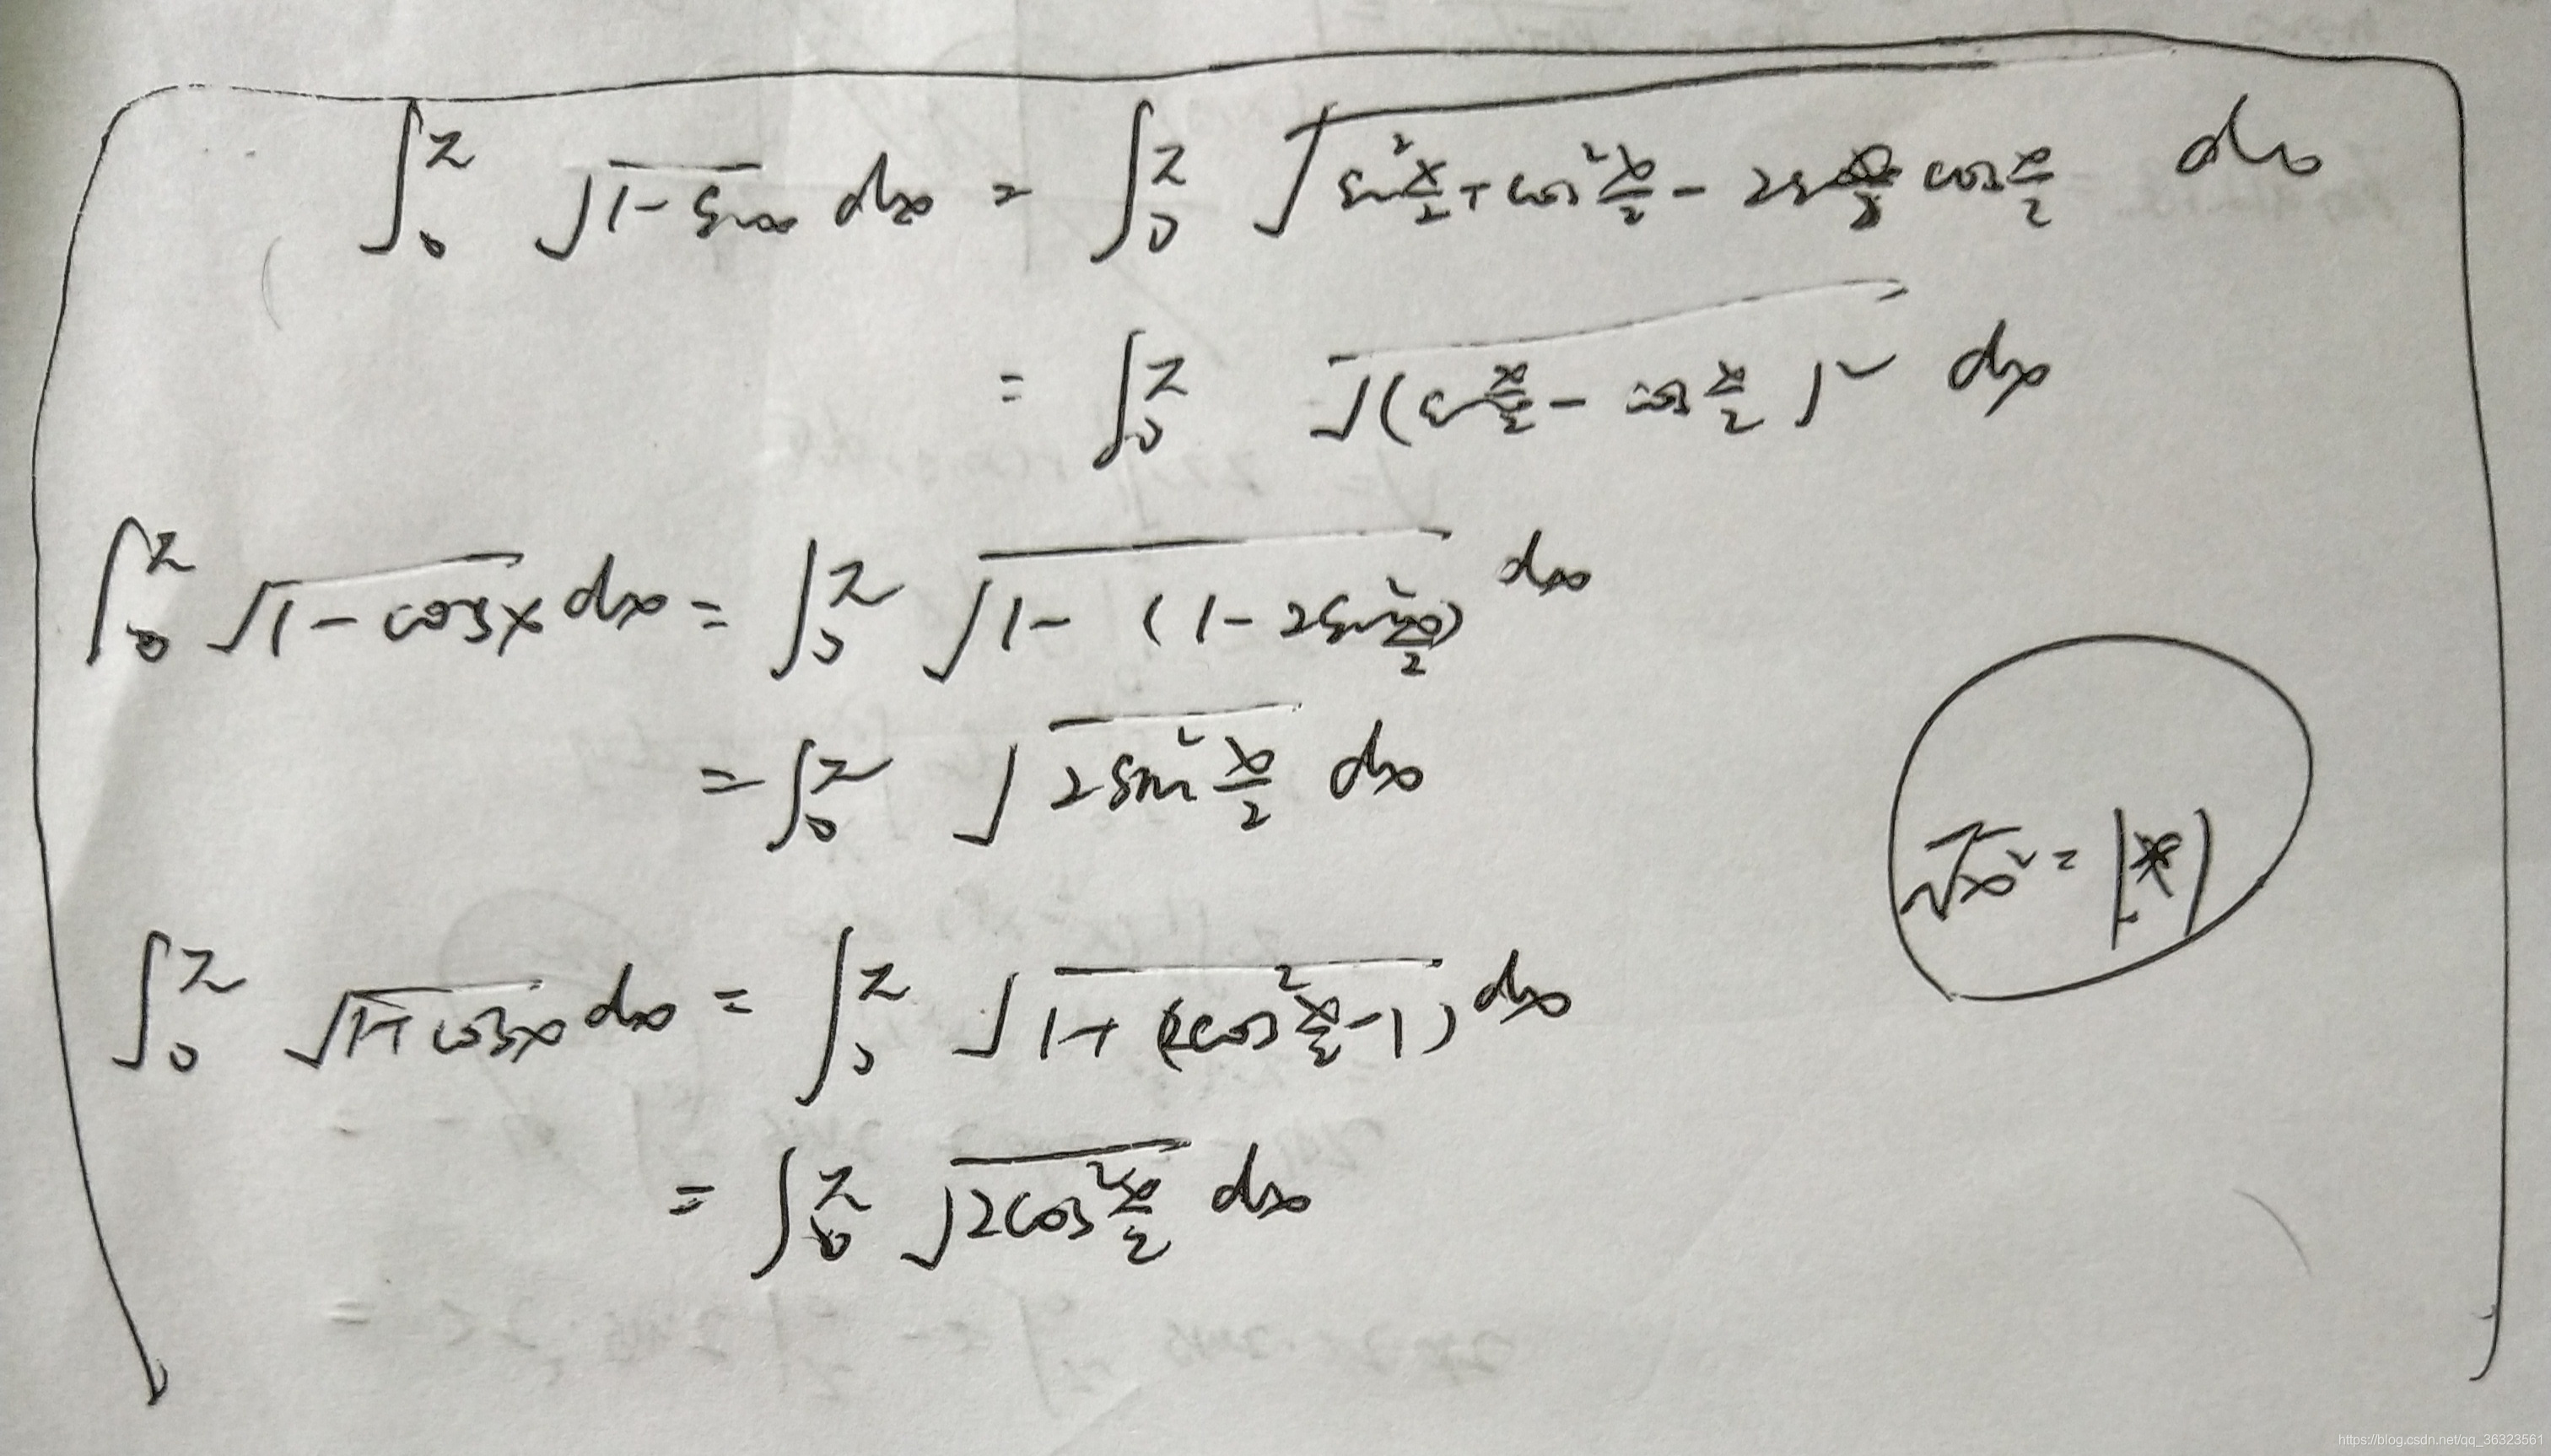 ∫₀^π √(1-sinx) dx = ∫₀^π √(sin²x/2 + cos²x/2 - 2sin x/2 cos x/2) dx
= ∫₀^π √((sin x/2 - cos x/2)²) dx
∫₀^π √(1-cosx) dx = ∫₀^π √(1-(1-2sin²x/2)) dx
= ∫₀^π √(2sin²x/2) dx
√x² = |x|
∫₀^π √(1+cosx) dx = ∫₀^π √(1+(2cos²x/2-1)) dx
= ∫₀^π √(2cos²x/2) dx
https://blog.csdn.net/qq_36323561